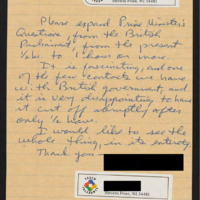 Stevens Point, WI 54481
Please expand Prime Minister's
Question, from the British
Parliament, from the present
½ hr. to 1 hour or more.
It is fascinating, and one
of the few contacts we have
with British government, and
it is very disappointing to have
it cut off abruptly after
only ½ hour.
I would like to see the
whole thing, in its entirety.
Thank you
Stevens Point, WI 54481